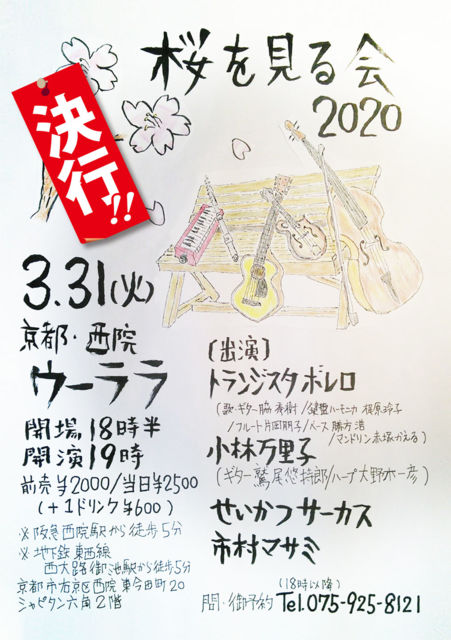 桜を見る会
2020
決行!!
3.31(火)
京都・西院
ウーララ
開場18時半
開演19時
前売¥2000/当日¥2500
(+1ドリンク¥600)
※阪急西院駅から徒歩5分
※地下鉄東西線
西大路御池駅から徒歩5分
京都市右京区西院東今田町20
シャピタン六角2階
〔出演〕
トランジスタボレロ
(歌・ギター脇春樹/鍵盤ハーモニカ梶原玲子
/フルート片岡朋子/ベース勝方浩
/マンドリン赤塚かえる)
小林万里子
(ギター鷲尾悠持郎/ハープ大野木一彦)
せいかつサーカス
市村マサミ
(18時以降)
問・御予約 Tel.075-925-8121